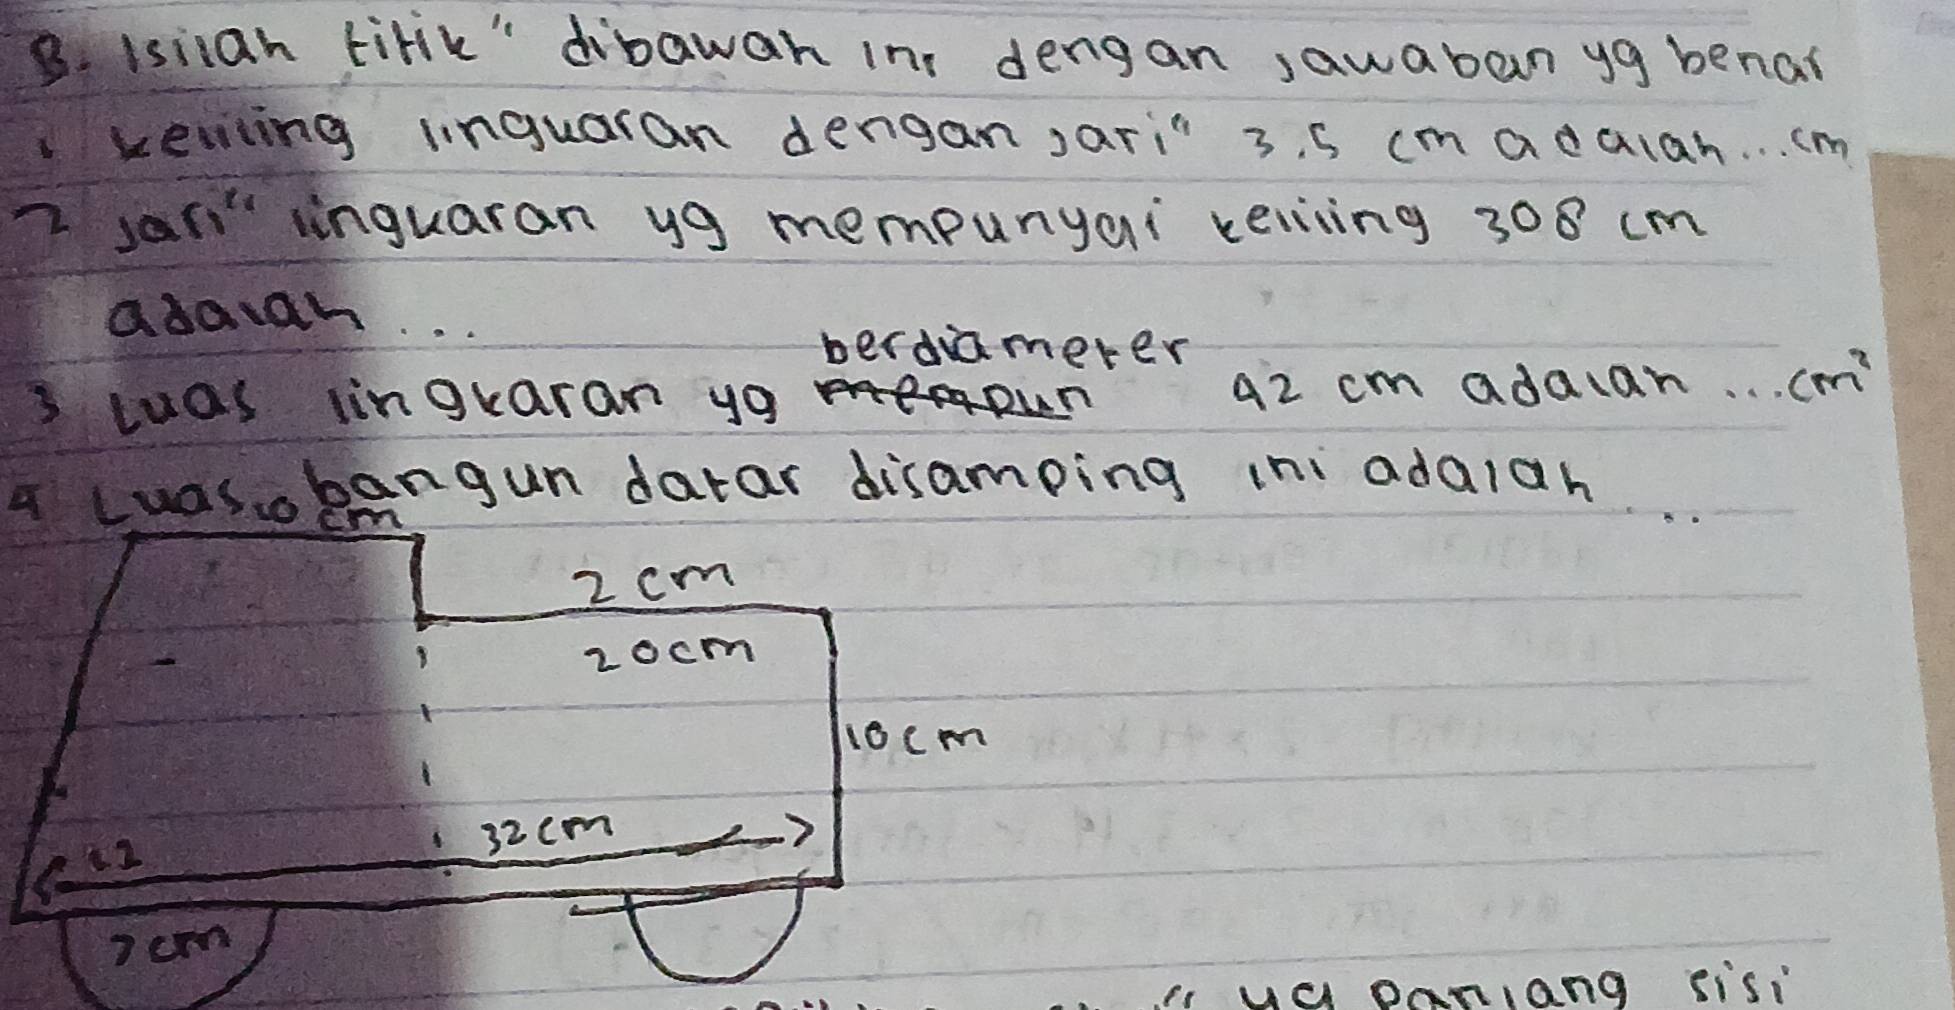 B. Isilah titik" dibawah ini dengan jawaban yg benar
1 keliling lingkaran dengan jari" 3,5 cm adalah... cm
2 jari" lingkaran yg mempunyai keliling 308 cm
adalah ...
berdiameter
3 Luas lingkaran yg mempun 42 cm adalah ... cm²
4 Luas bangun datar disamping ini adalah ...
10 cm
2 cm
20cm
10cm
32cm
12
7cm
yg panjang sisi